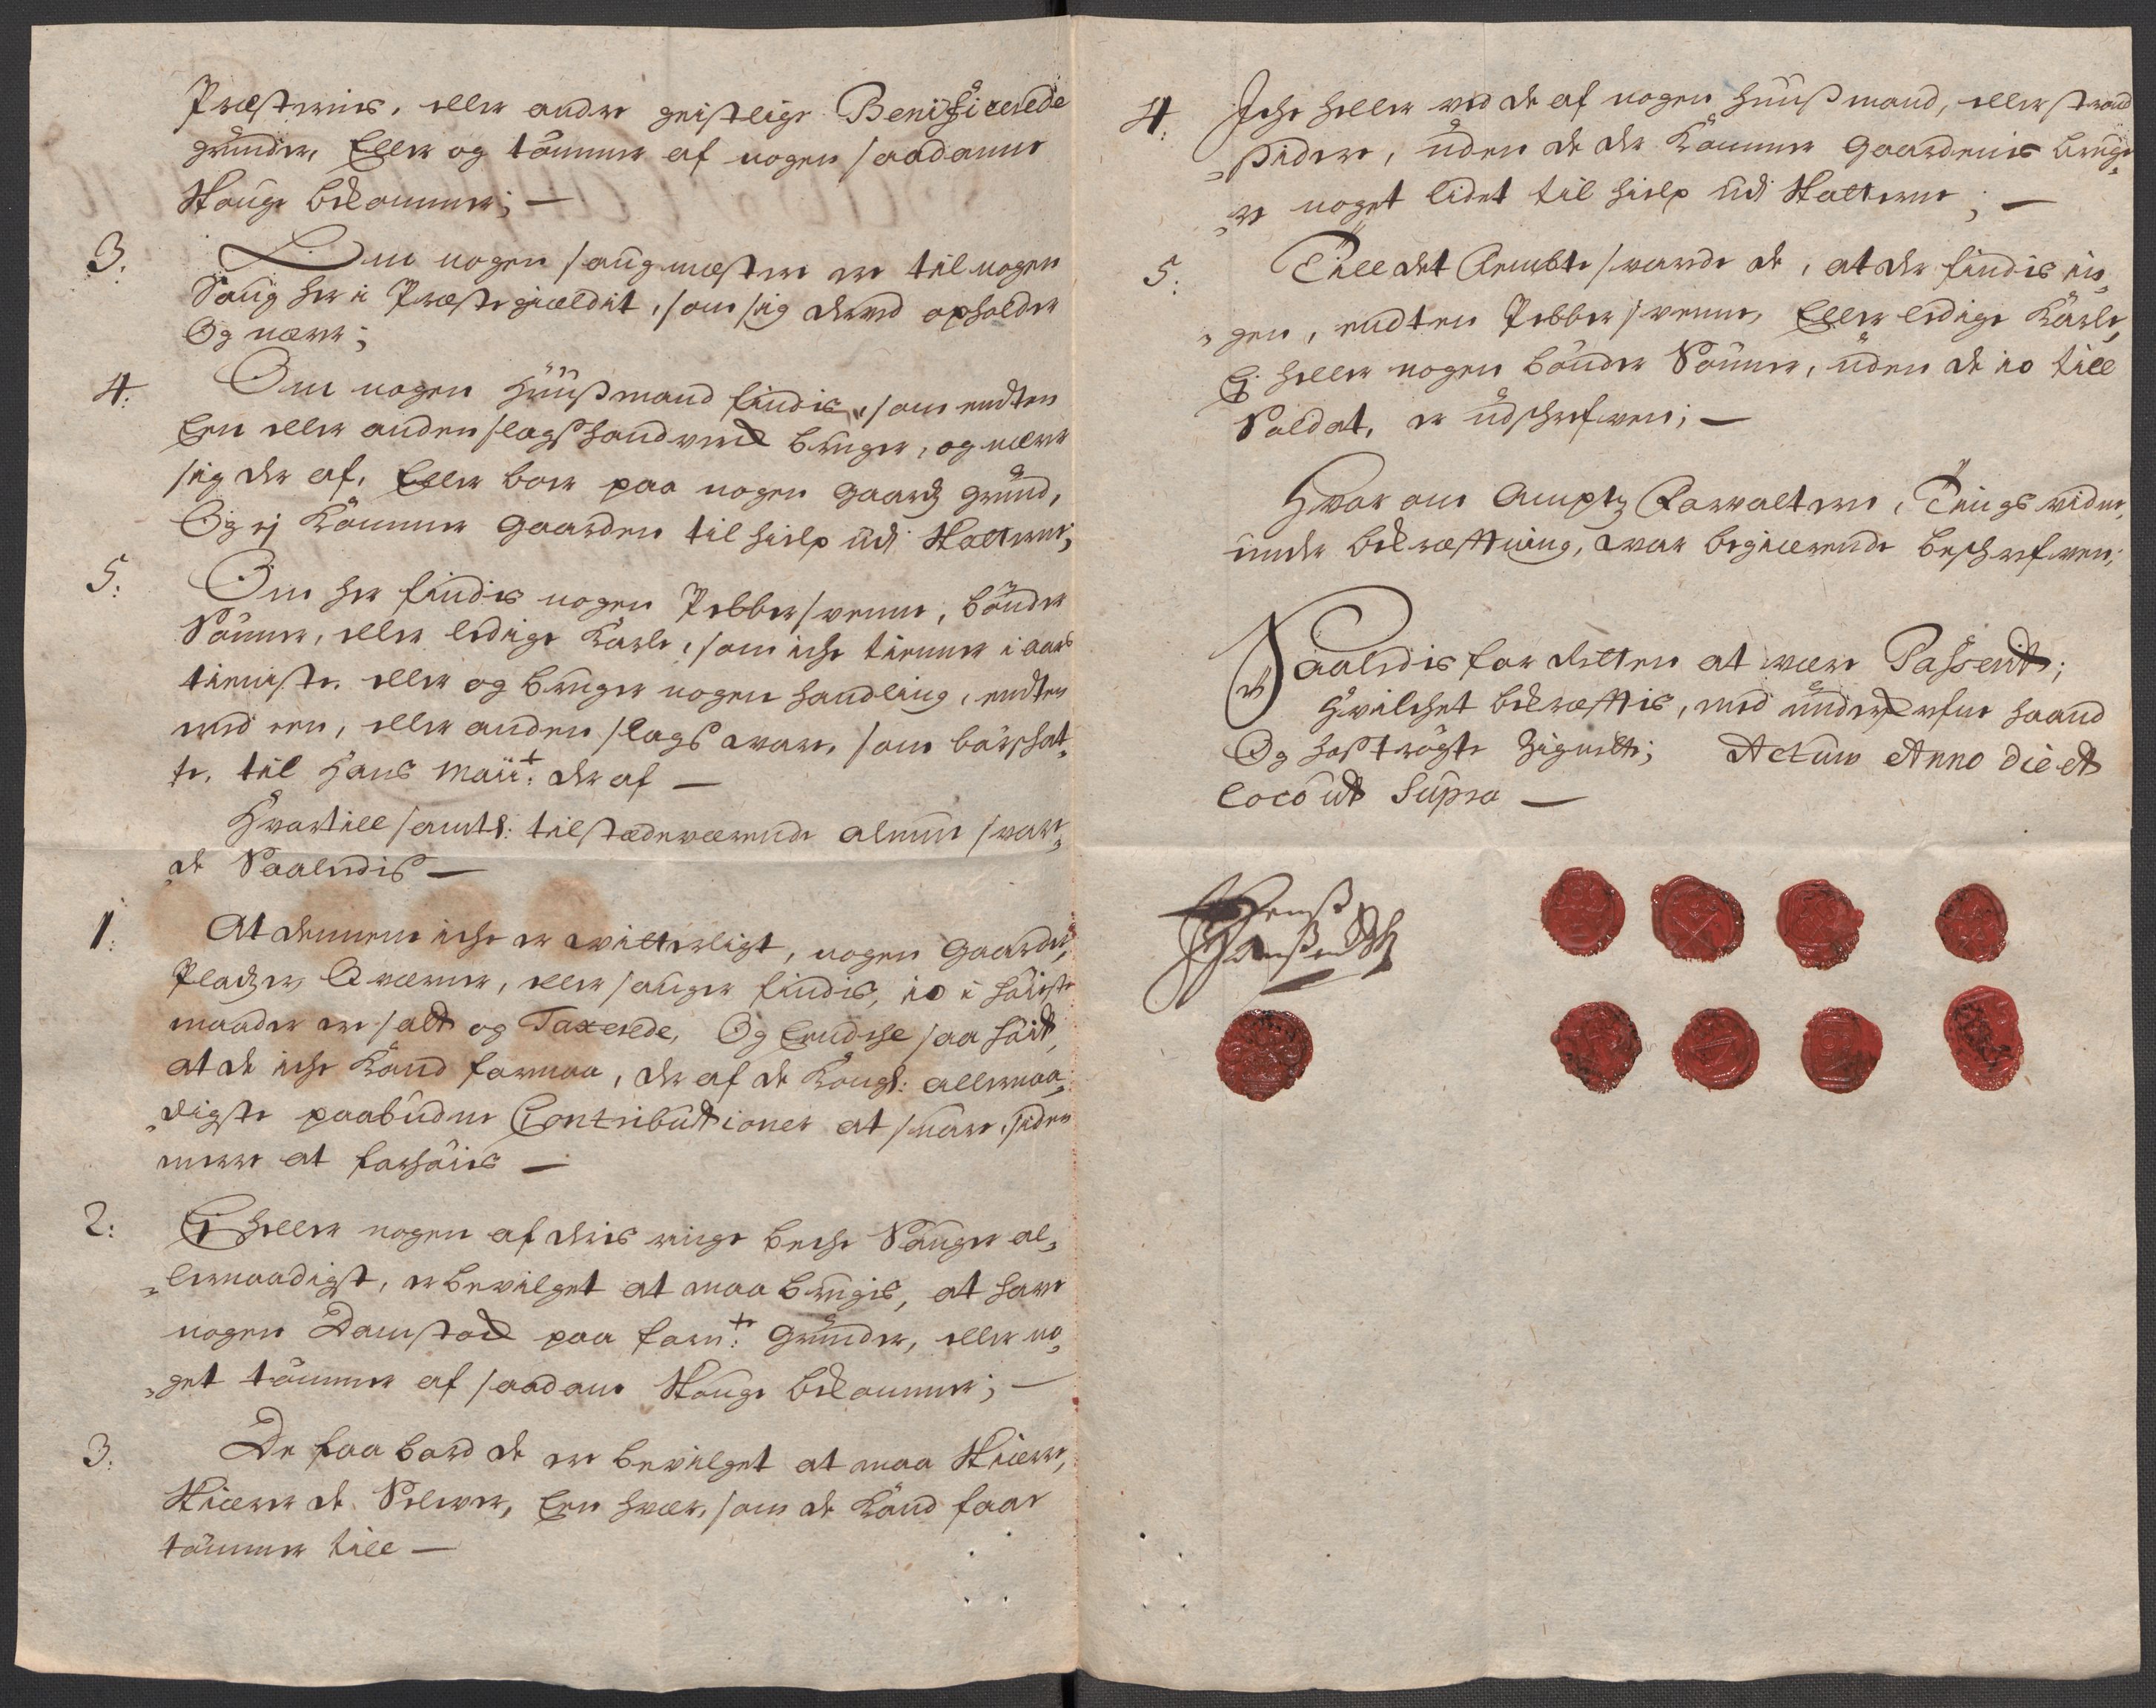 Præsternis, eller andre geistlige Benificerede
grunder, Eller og tömmer af nogen saadanne
Skouge bekommer; —
3. Om nogen saugmestere ere til nogen
Saug her i Præstegieldit, som sig derved opholder
Og nærer;
4. Om nogen Huusmand findis, som endten
Een eller anden slags Handverck bruger, og nærer
sig der af, Eller boer paa nogen gaards grund,
Og ej kommer gaarden til hielp udi Skatterne;
5. Om her findis nogen Pebbersvenne, bönder
Sönner, eller ledige Karle, som iche tienner i aars
tieniste, eller og bruger nogen handling, endten
med een, eller anden slags ware, som bör schat„
te, til Hans Maÿt: der af —
Hvortill samtl: tilstædeværende almue svare„
„de Saaledis —
1: At dennem iche er witterligt, nogen gaarder,
Pladzer, Qværner, eller sauger findis, io i höieste
maader ere satt og Taxerede, Og Endsche saa höit,
at de iche kand formaa, der af de kongl: allernaa„
„digste paabudne Contributioner at svare, siden
mere at forhöies —
2: Ej heller nogen af deris ringe beche Sauger al„
„lernaadigst, er bevilget at maa brugis, at have
nogen Damstock paa forn:te grunder, eller no„
„get tömmer af saadane Skouge bekommer; —
3: De faa bord de ere bevilget at maa Skiere,
Skierer de Selver, Een hver, som de kand faae
tömmer till —
4: Iche heller ved de af nogen Huusmand, eller strand
„sidere, uden de der kommer gaardenis bruge„
„re noget lidet til hielp udi Skatterne; —
5: Till det Fembte svarede de, at der findis in„
„gen, endten Pebbersvenne, Eller ledige Karle,
Ej heller nogen bönder Sönner, uden de io till
Soldat, er udschrefwen; —
Hvor om Ampts Forvalteren, Tings vidne,
under bekræfttning, war begierende beschrefwen;
Saaledis for Retten at være Passerit;
Hvilchet bekræfttis, med underschrefne haand
Og hoströgte Zignetter; Actum Anno die et
loco ut Supra —